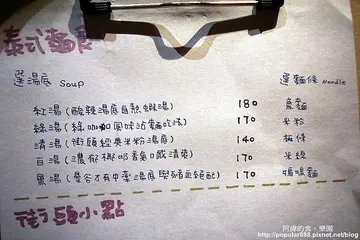 泰式麵食
選湯底 Soup
選麵條 Noodle
紅湯(酸辣湯底自熬蝦湯) 180 魚麵
綠湯(綠咖哩風味泊麵吃法) 170 米粉
清湯(街頭經典米粉湯底) 140 板條
白湯(濃郁椰奶香氣口感清爽) 170 米線
黑湯(曼谷才有中藥湯底與豬血絕配) 170 媽媽麵
街頭小點
阿偉的食。樂園
http://popular888.pixnet.net/blog